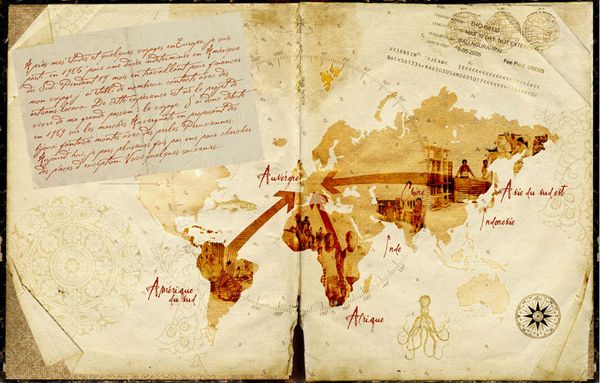 Après mes études et quelques voyages en Europe, je suis
parti en 1986 pour une durée indéterminée en Amérique
du Sud. Pendant 17 mois en travaillant pour financer
mon voyage, j'ai établi de nombreux contacts avec des
artisans locaux. De cette expérience est né le projet de
vivre de ma grande passion : le voyage. J'ai donc débuté
en 1989 sur les marchés Auvergnats en proposant des
bijoux fantaisie montés avec des perles Péruviennes.
Aujourd'hui, je pars plusieurs fois par ans pour chercher
des pièces d'exception. Voici quelques souvenirs...
MAX 30 DAY, NOT EXTEN
BALI NGURAH RAI
Fee Paid USD25
Auvergne
Chine
Asie du sud est
Indonesie
Inde
Amérique
du sud
Afrique